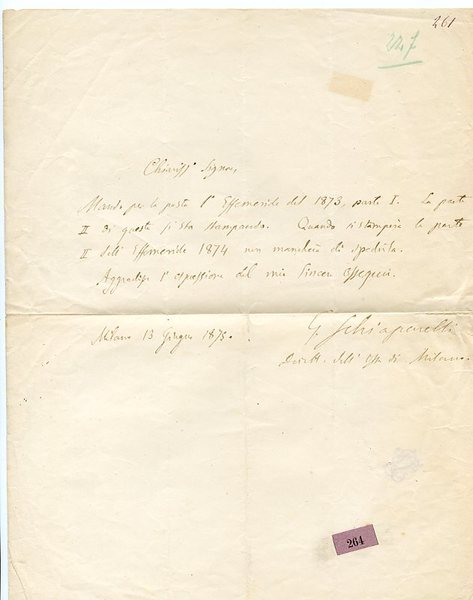 261
227
Chiariss° Signore,
Mando per la posta l'Effemeride del 1873, parte I. La parte
II di questa si sta stampando. Quando si stamperà la parte
II dell'Effemeride 1874 non mancherò di spedirla.
Aggradisca l'espressione del mio sincero ossequio.
Milano 13 Giugno 1875.
G Schiaparelli
Dirett. dell' Oss. di Milano.
264